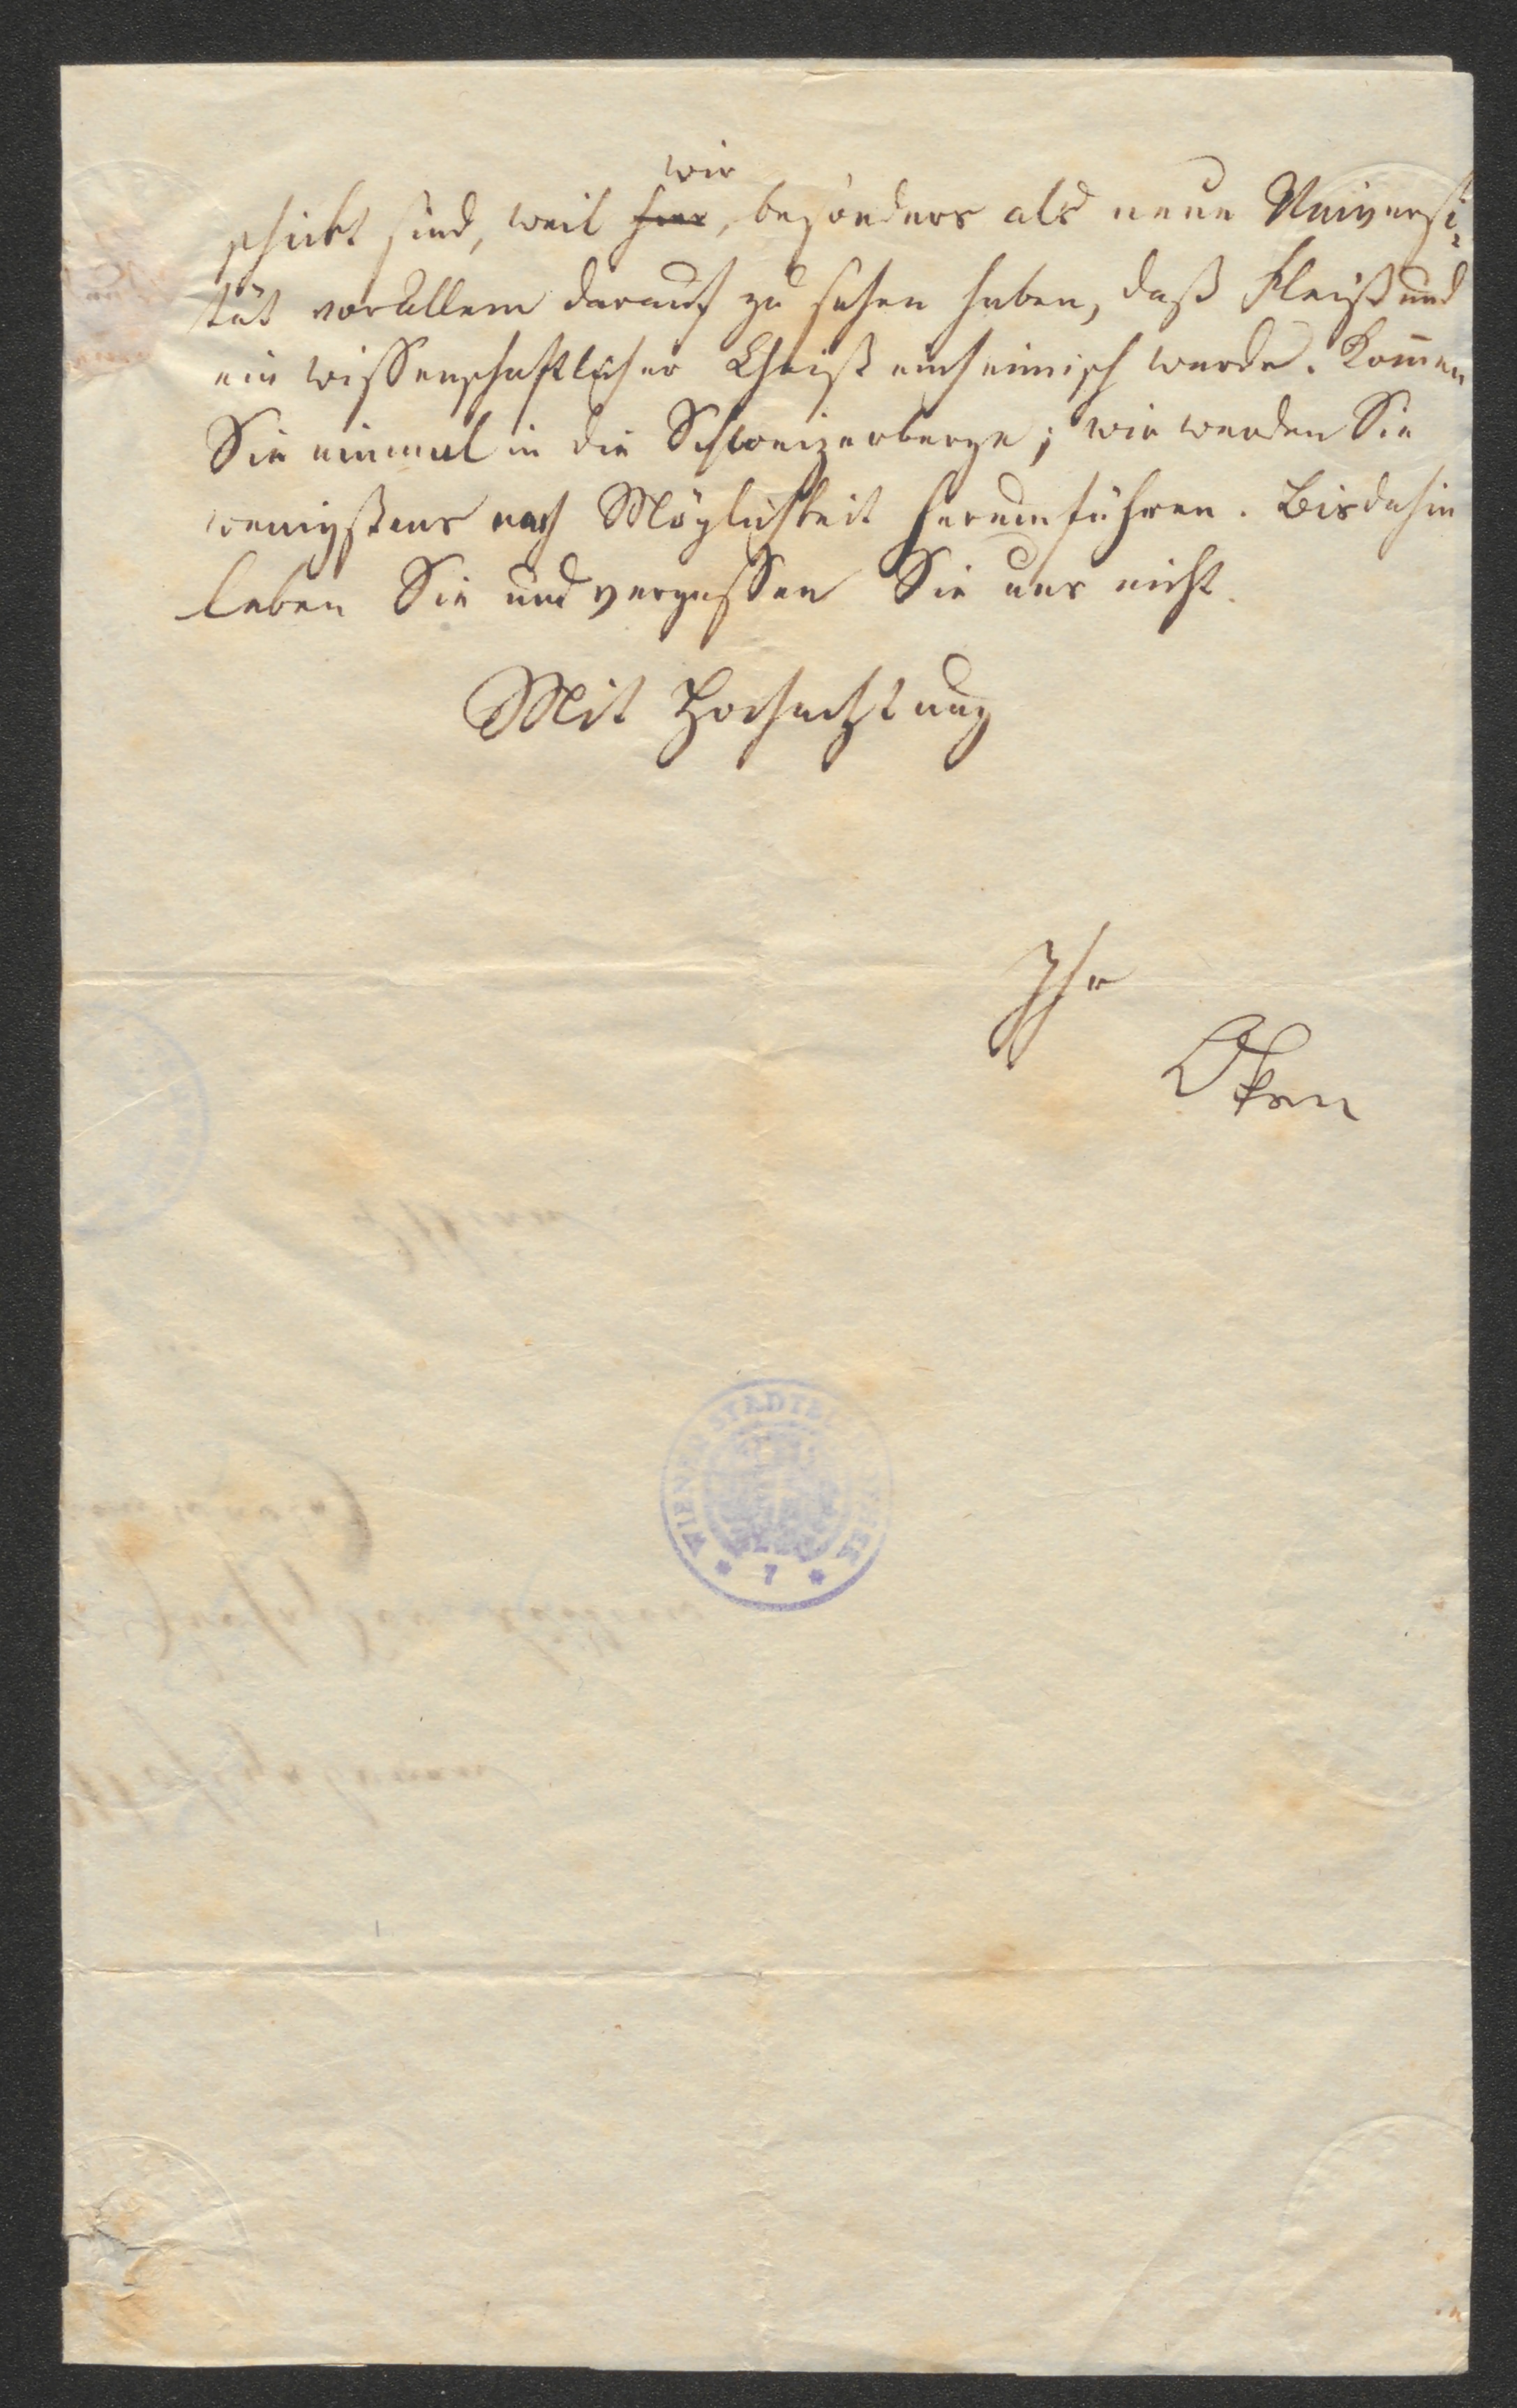 wir
schickt sind, weil hier, besonders als neue Universi-
tät vor Allem darauf zu sehen haben, daß Fleiß und
ein wissenschaftlicher Geist einheimisch werde. Kom̄en
Sie einmal in die Schweizerberge; wir werden Sie
wenigstens nach Möglichkeit herumführen. Bis dahin
leben Sie und vergessen Sie uns nicht.
Mit Hochachtung
Ihr
Oken
WIENER STÆDTE
* 7 *